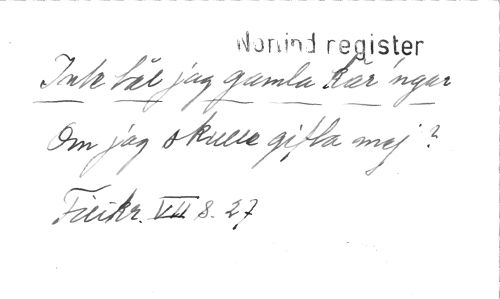 Norlind register
Inte tål jag gamla kär'ngar
Om jag skulle gifta mej?
VII s. 27